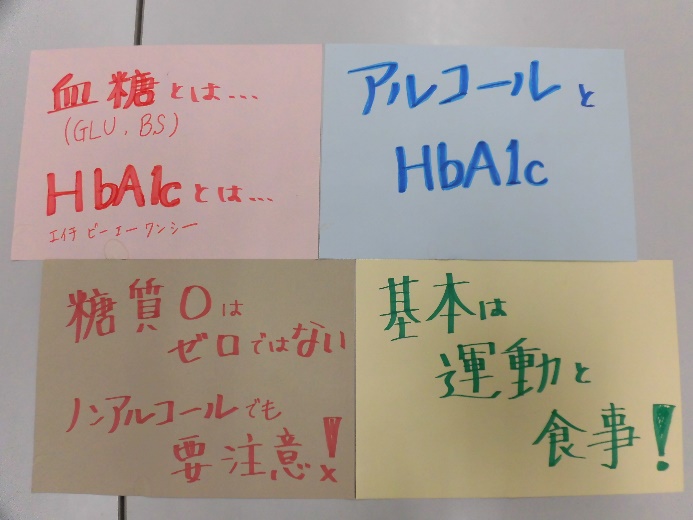 血糖とは...
(GLU, BS)
HbA1cとは...
エイチ ビー エー ワンシー
アルコールと
HbA1c
糖質0は
ゼロではない
ノンアルコールでも
要注意!
基本は
運動と
食事!